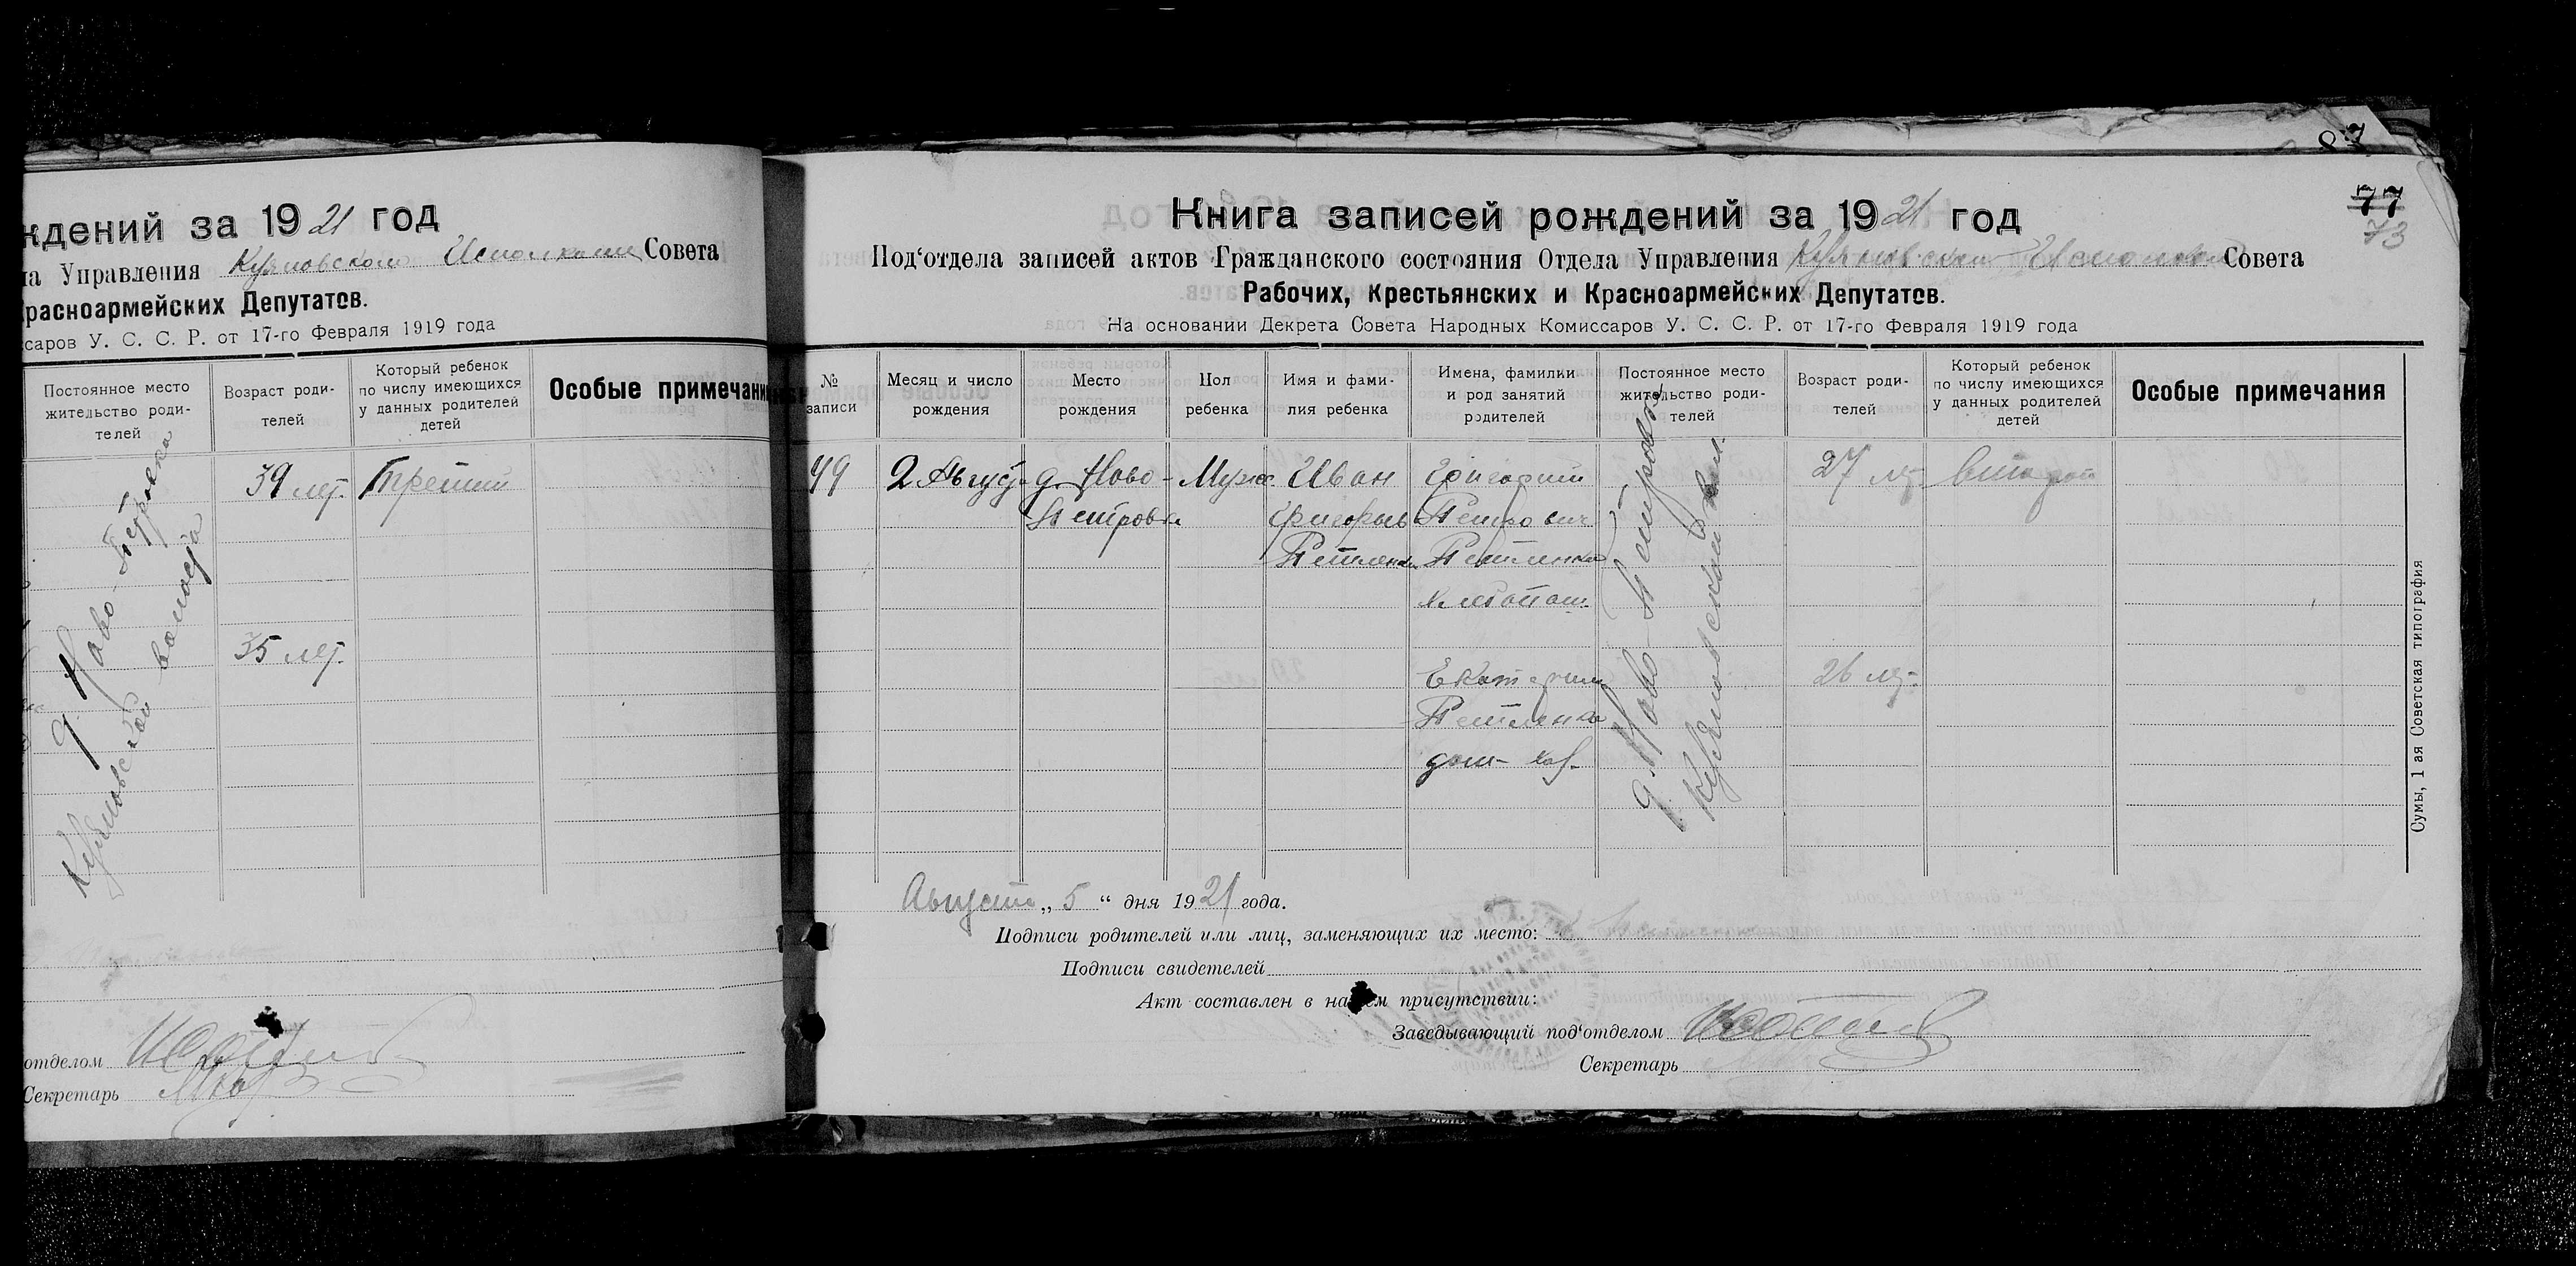 ждений за 1921 год
ла Управления Куяновского Исполкома Совета
Красноармейских Депутатов.
ссаров У. С. С. Р. от 17-го Февраля 1919 года
Постоянное место жительство роди-телей
Возраст роди-телей
Который ребенок по числу имеющихся у данных родителей детей
Особые примечания
д. Ново-Петровка
волости
39 лет.
Третий
35 лет.
отделом
Секретарь
87
77
73
Книга записей рождений за 1921 год
Под‘отдела записей актов Гражданского состояния Отдела Управления Совета
Рабочих, Крестьянских и Красноармейских Депутатов.
На основании Декрета Совета Народных Комиссаров У. С. С. Р. от 17-го Февраля 1919 года
№ записи
Месяц и число рождения
Место рождения
Пол ребенка
Имя и фами-лия ребенка
Имена, фамилии и род занятий родителей
Постоянное место жительство роди-телей
Возраст роди-телей
Который ребенок по числу имеющихся у данных родителей детей
Особые примечания
2 Август. д. Ново- Муж. Иван Григорий
Петровка
хлебопаш.
27 л. второй
Екатерина
26 л.
дом- хоз.
д. Ново-Петровка
Августа „5“ дня 1921 года.
Подписи родителей или лиц, заменяющих их место:
Подписи свидетелей
Акт составлен в нашем присутствии:
Заведывающий под‘отделом
Секретарь
Сумы, 1 ая Советская типография